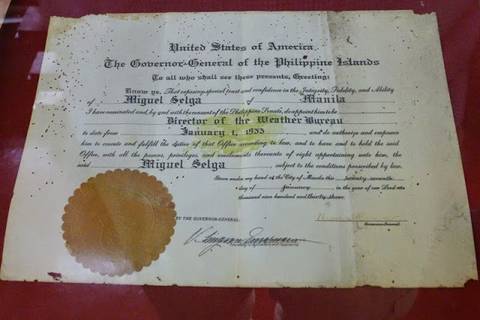 United States of America
The Governor-General of the Philippine Islands
To all who shall see these presents, Greeting:
Know ye, That reposing special trust and confidence in the Integrity, Fidelity, and Ability
of Miguel Selga of Manila
I have nominated and, by and with the consent of the Philippine Senate, do appoint him to be
Director of the Weather Bureau
to date from January 1, 1933 and do authorize and empower
him to execute and fulfill the duties of that Office according to law, and to have and to hold the said
Office, with all the powers, privileges, and emoluments thereunto of right appertaining unto him, the
said Miguel Selga subject to the conditions prescribed by law.
Given under my hand at the City of Manila this twenty-seventh
day of January in the year of our Lord one
thousand nine hundred and thirty-three.
BY THE GOVERNOR-GENERAL:
Governor-General